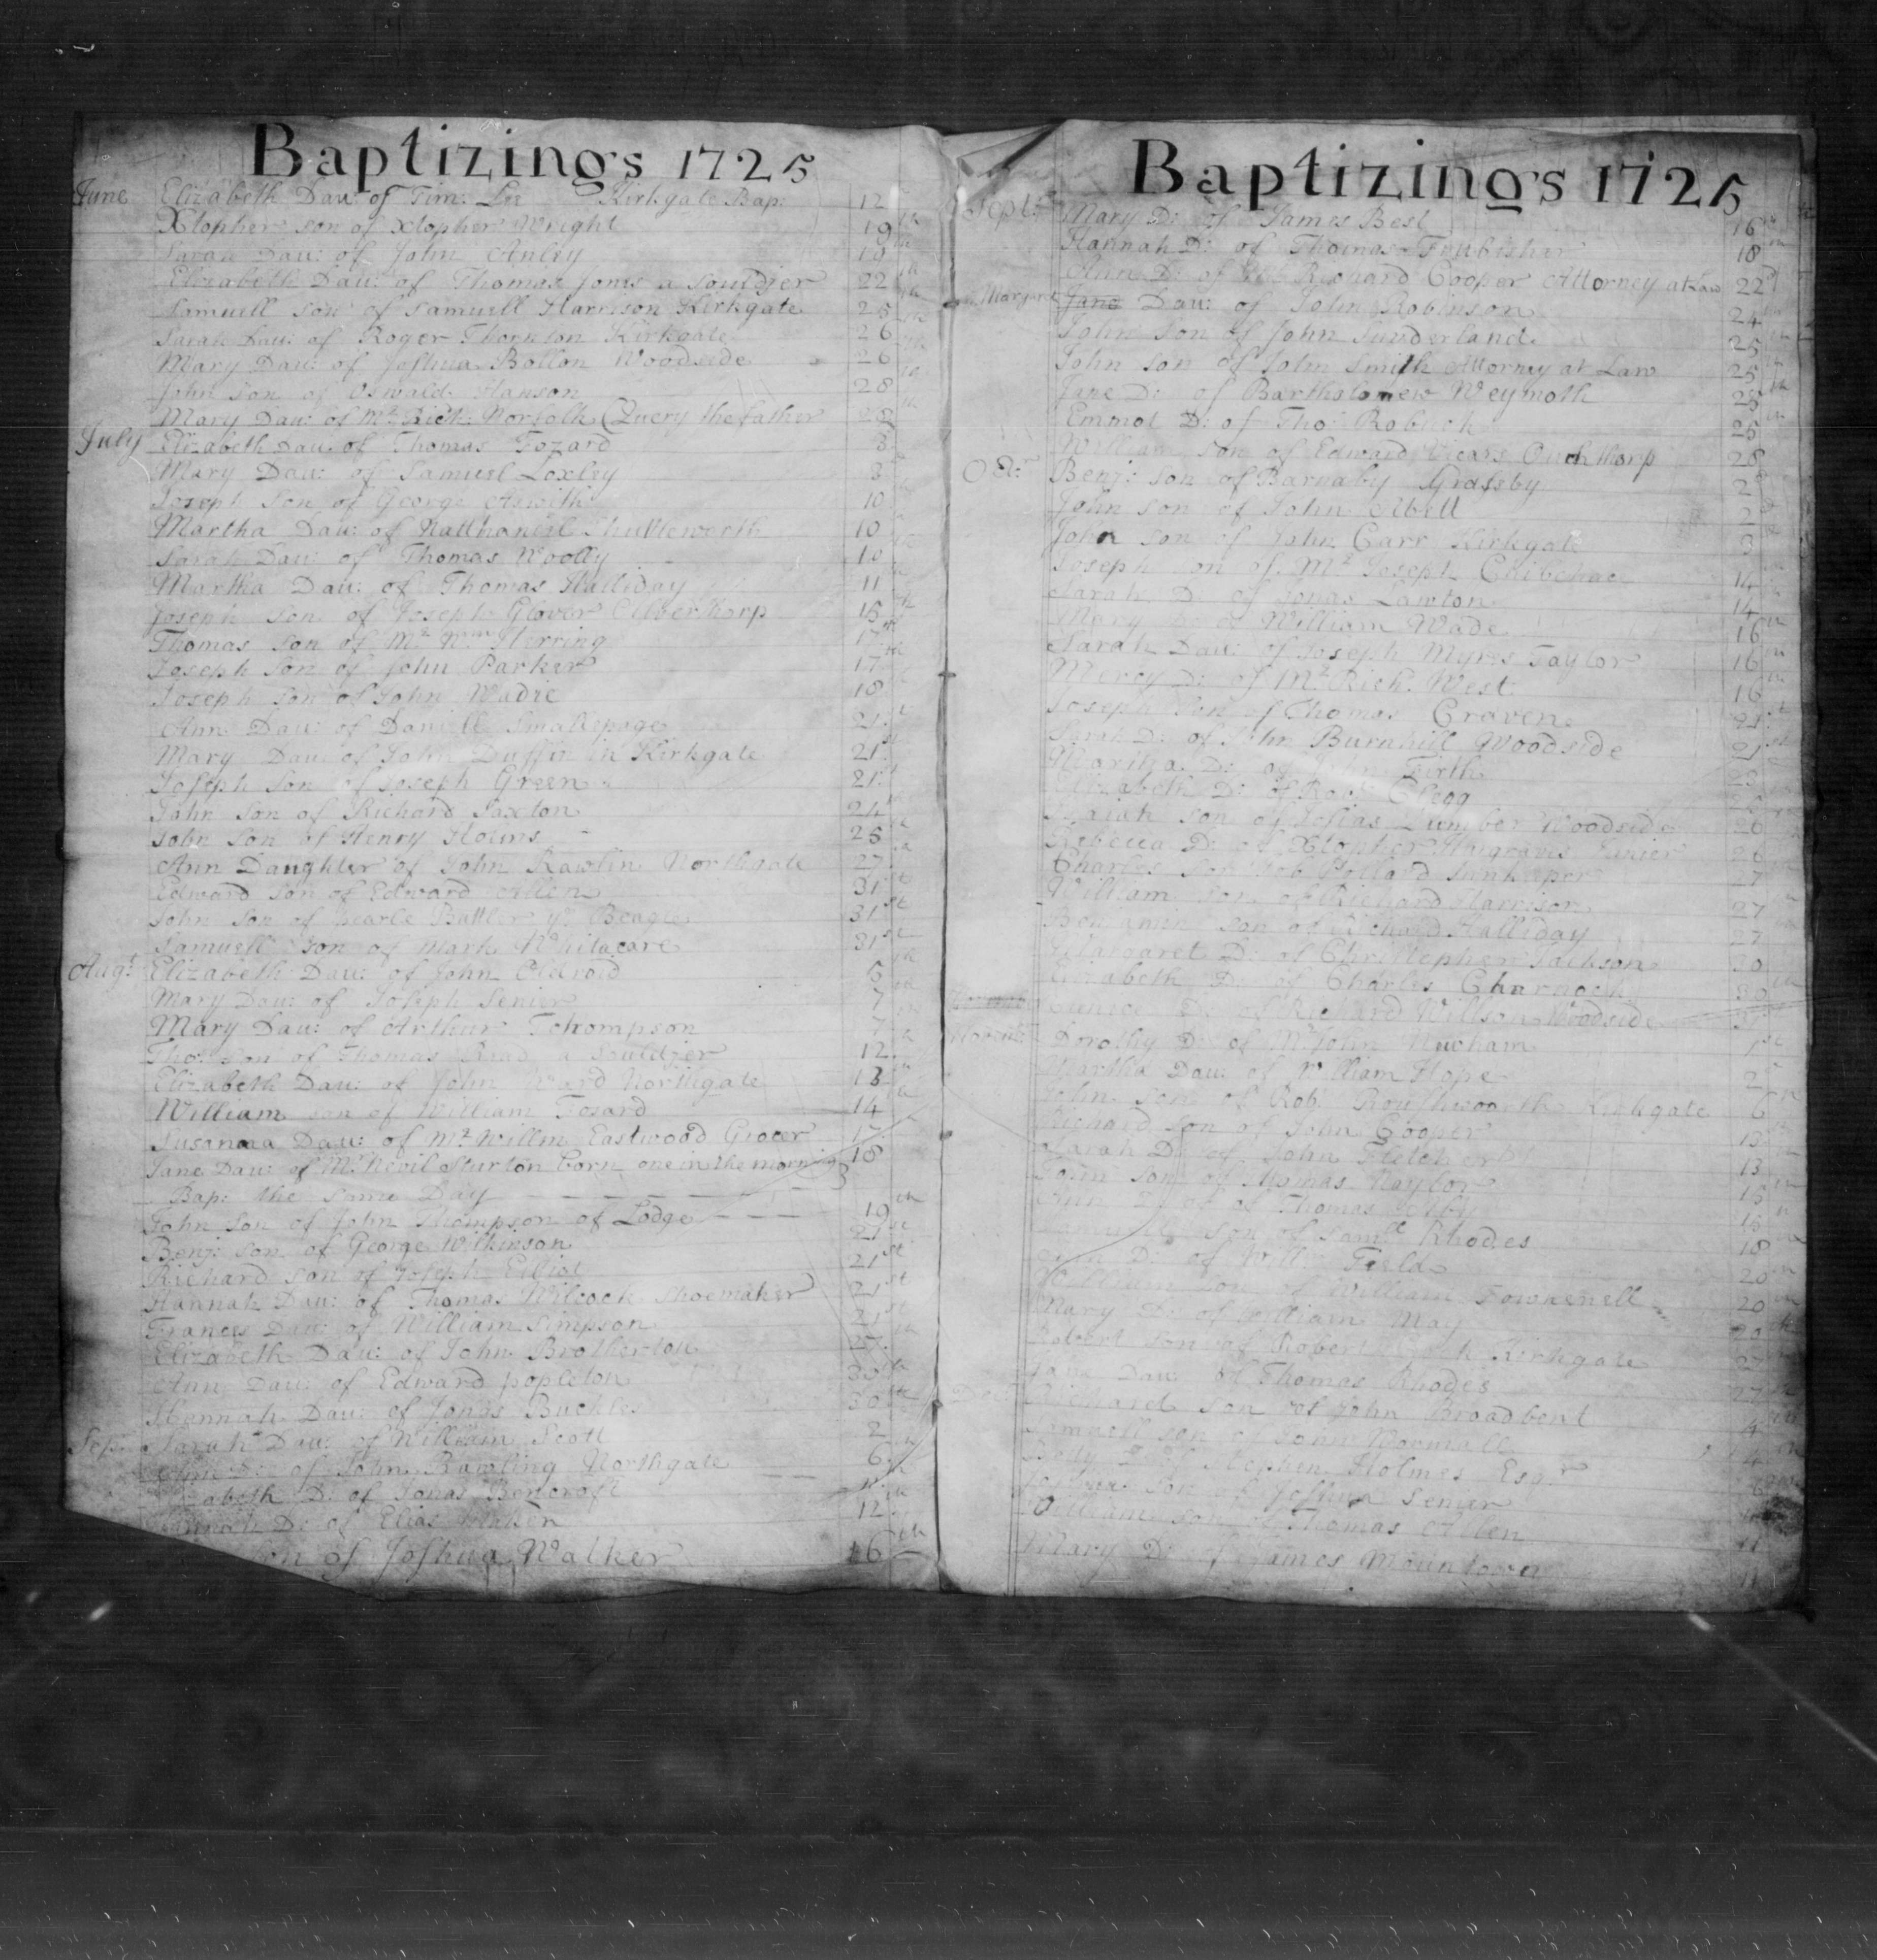 Baptizings 1725
June Elizabeth Dau: of Tim: Lee Kirkgate Bap: 12
Xtopher son of Xtopher Wright 19th
Sarah Dau: of John Anley 19
Elizabeth Dau: of Thomas Jones a Souldjer 22
Samuell son of Samuell Harrison Kirkgate 25
Sarah Dau: of Roger Thornton Kirkgate 26
Mary Dau: of Joshua Bollon Woodside 26
John son of Oswald Hanson 28
Mary Dau: of Mr Rich: Norfolk (Query the father 28
July Elizabeth Dau: of Thomas Fozard 8
Mary Dau: of Samuel Loxley 8
Joseph Son of George 10
Martha Dau: of Natthaneil Shuttleworth 10
Sarah Dau: of Thomas Woolly 10
Martha Dau: of Thomas Halliday 11
Joseph Son of Joseph Glover Alverthorp 15
Thomas Son of Mr Wm Herring 17th
Joseph Son of John Parker 17
Joseph Son of John Wadie 18
Ann Dau: of Daniell Smallepage 21
Mary Dau: of John Duffin in Kirkgate 21st
Joseph Son of Joseph Green 21st
John Son of Richard Saxton 24
John Son of Henry Holms 25
Ann Daughter of John Rawlin Northgate 27
Edward Son of Edward Allen 31st
John Son of Searle Battler ye Beagle 31st
Samuell Son of Mark Whitacare 31st
Augt Elizabeth Dau: of John Oldroid 5th
Mary Dau: of Joseph Senier 7th
Mary Dau: of Arthur Tchompson 7
Tho: Son of Thomas Read a Souldjer 12
Elizabeth Dau: of John Ward Northgate 13
William son of William Fosard 14
Susanna Dau: of Mr Willm Eastwood Grocer 17
Jane Dau: of Mr Nevil Sturton born one in the morning 18
Bap: the same Day
John Son of John Thompson of Lodge 19th
Benj: Son of George Wilkinson 21st
Richard Son of Joseph Elliot 21st
Hannah Dau: of Thomas Wilcock Shoemaker 21st
Frances Dau: of William Simpson 21st
Elizabeth Dau: of John Brotherton 27
Ann Dau: of Edward popleton 30th
Hannah Dau: of Jonas Buckle 30th
Sep: Sarah Dau: of William Scott 2
Ann D: of John Rawling Northgate 6
abeth D: of Jonas Bencroft
Hannah D: of Elias 12
on of Joshua Walker 16th
Baptizings 1725
Sept: Mary D: of James Best 16
Hannah D: of Thomas Frubisher 18
Ann D: of Mr Richard Cooper Attorney at Law 22d
Margaret Jane Dau: of John Robinson 24
John Son of John Sunderland 25
John Son of John Smith Attorney at Law 25
Jane D: of Bartholomew Weymoth 28
Emmot D: of Tho: Robuck 25
William Son of Edward Vicars Ouchthorp 28
Oct: Benj: Son of Barnaby Grassby 2
John Son of John Abell 2
John Son of John Carr Kirkgate 3
Joseph on of Mr Joseph 14
Sarah D: of Jonas Lawton 14
Mary D: of William Wade 16
Sarah Dau: of Joseph Myers Taylor 16
Mercy D: of Mr Rich: West 16
Joseph Son of Thomas Craven 21st
Sarah D: of John Burnhill Woodside 21st
Martha D: of John Firth 23
Elizabeth D: of Robt Clegg
Isaiah Son of Josias Lumber Woodside 26
Rebecca D: of Xtopher Musgrave 26
Charles Son Job Pollard Innkeeper 27
William Son of Richard Harrison 27
Benjamin Son of Richard Halliday 27
Margaret D: of Christopher Jackson 30
Elizabeth D: of Charles Charnock 30
D: of Richard Willson Woodside
Novem: Dorothy D: of Mr John Nucham 1st
Martha Dau: of William Hope 2
John Son of Rob: Roushwoorth Kirkgate 6
Richard Son of John Cooper 13
Sarah D: of John Fletcher 13
John Son of Thomas Naylor 15
Ann D: of Thomas 15
Son of Samll Rhodes 18
D: of Will: Field 20
William Son of William Townsnell 20
Mary D: of William May 20
Robert Son of Robert Kirkgate 27
Jane Dau: of Thomas Rhodes 27
Richard Son of John Broadbent 4
Samuell Son of John Wormall 4
Betty D: of Stephen Holmes Esqr 6
Joshua Son of Joshua Senier
William Son of Thomas Allen 11
Mary D: of James Mountown 11